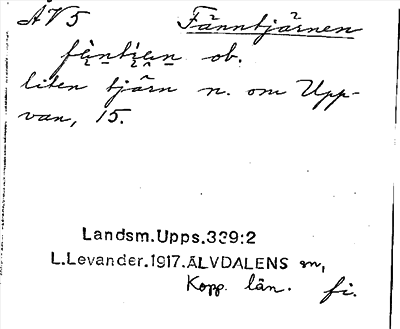 ÄV5 Fänntjärnen
ob.
liten tjärn n. om Upp-
van, 15.
Landsm.Upps.339:2
L.Levander.1917.ÄLVDALENS sn,
Kopp. län. fi.